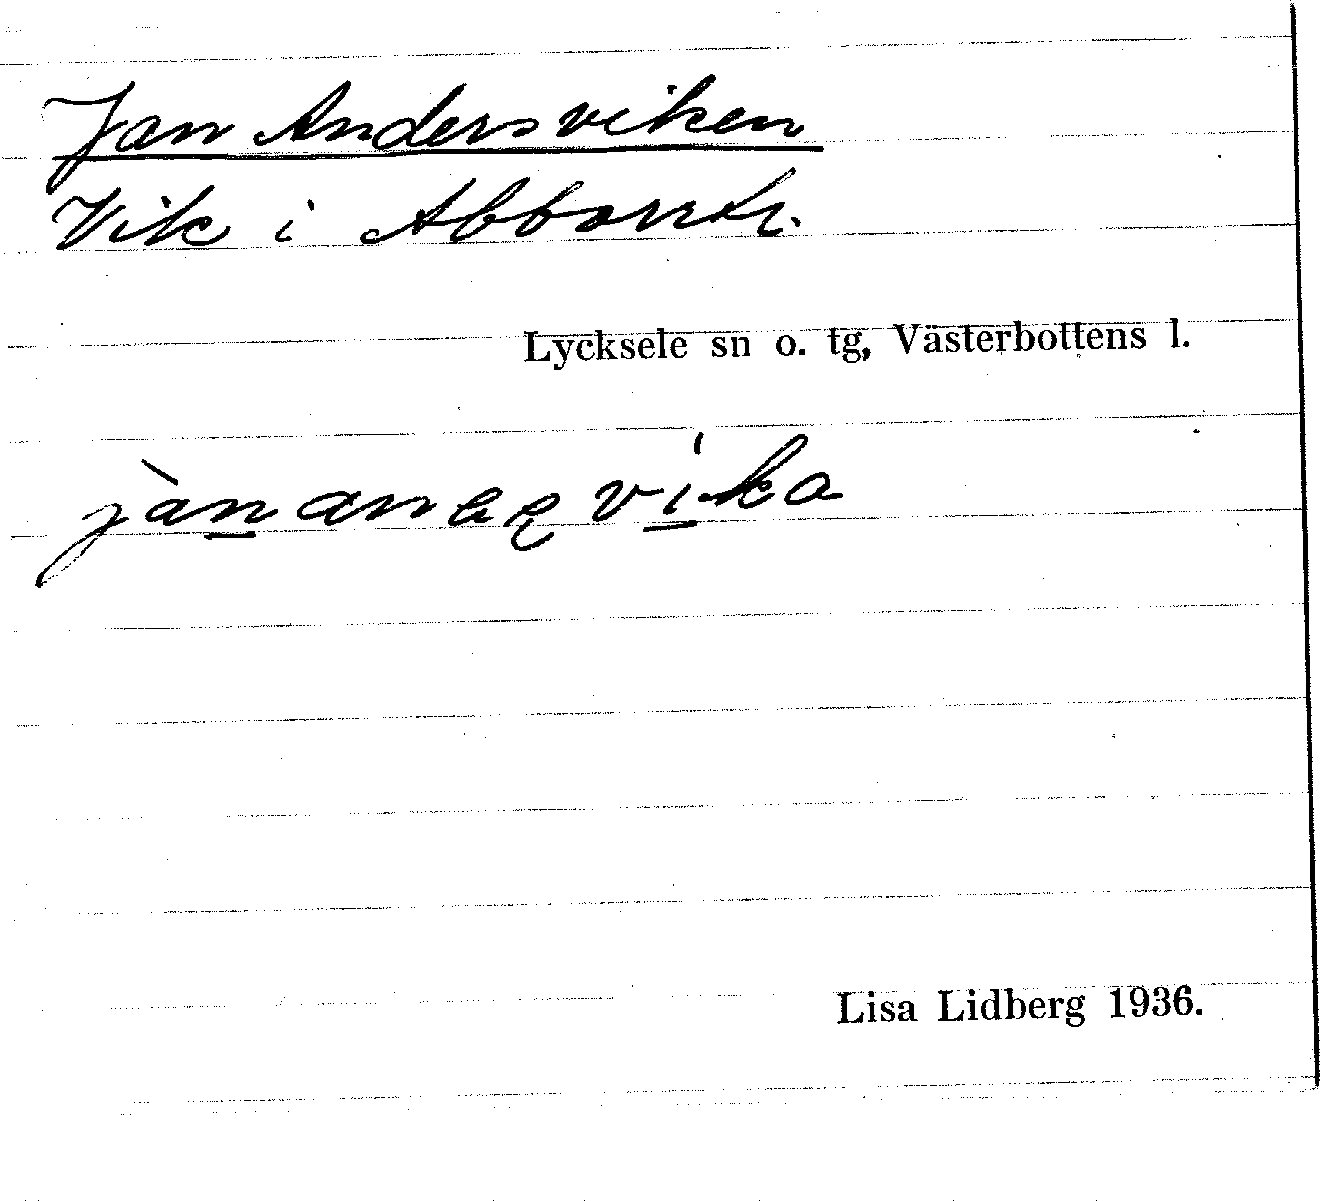 Jan Andersviken
Vik i Abborrtr.
Lycksele sn o. tg, Västerbottens l.
Lisa Lidberg 1936.